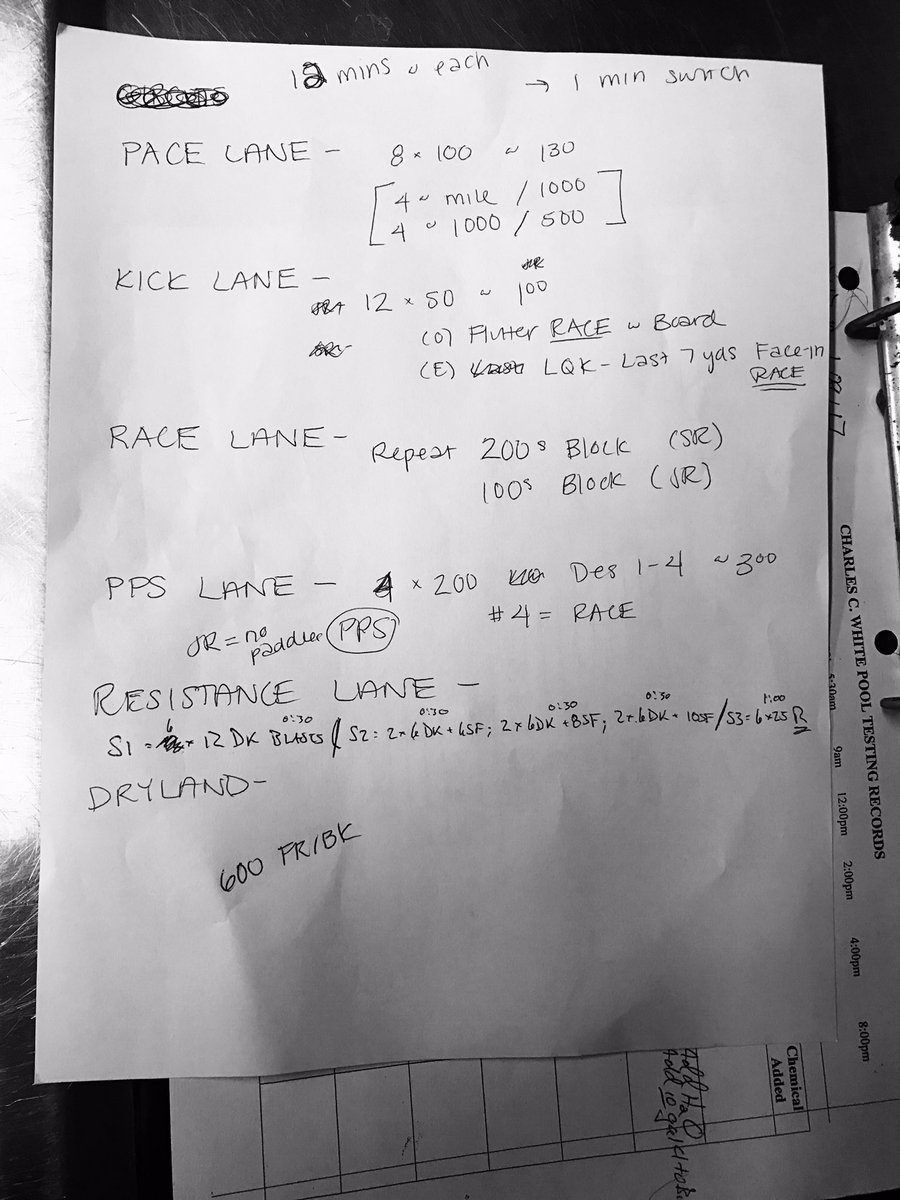 12 mins ~ each → 1 min switch
PACE LANE – 8 × 100 ~ 130
[4 ~ mile / 1000
4 ~ 1000 / 500]
KICK LANE –
12 × 50 ~ 100
(O) Flutter RACE w Board
(E) LQK – Last 7 yds Face-in
RACE
RACE LANE – Repeat 200s Block (SR)
100s Block (JR)
PPS LANE – 4 × 200 Des 1-4 ~ 300
#4 = RACE
JR = no
paddles PPS
RESISTANCE LANE –
6 0:30 0:30 0:30 0:30 1:00
S1 = × 12 DK BLASTS / S2 = 2 × 6 DK + 6SF; 2 × 6DK + 8SF; 2 × 6DK + 10SF / S3 = 6 × 25
DRYLAND –
600 FR/BK
CHARLES C. WHITE POOL TESTING RECORDS
5:30am
9am
12:00pm
2:00pm
4:00pm
8:00pm
Chemical
Added
Add H2O
Add 10 gal